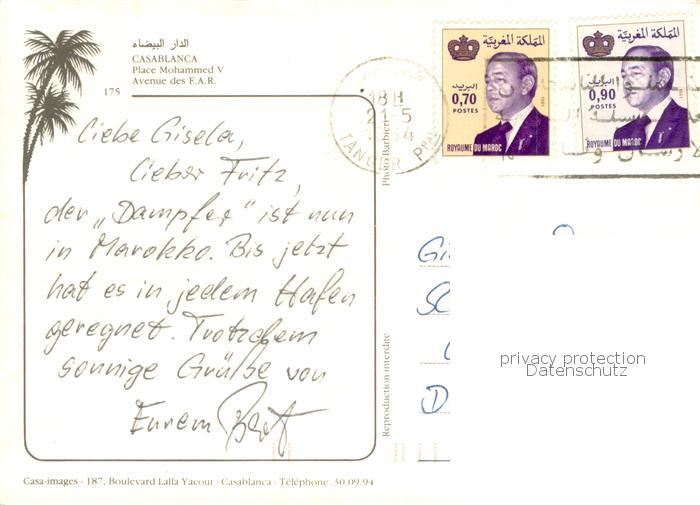 الدار البيضاء
CASABLANCA
Place Mohammed V
Avenue des F.A.R.
175
Liebe Gisela,
Lieber Fritz,
der „Dampfer" ist nun
in Marokko. Bis jetzt
hat es in jedem Hafen
geregnet. Trotzdem
sonnige Grüße von
Eurem
Casa-images - 187, Boulevard Lalla Yacout - Casablanca - Téléphone 30.09.94
Photo Barbieri
Reproduction interdite
18H
21-5
TANGER PPAL
المملكة المغربية
البريد
0,70
POSTES
ROYAUME DU MAROC
المملكة المغربية
البريد
0,90
POSTES
ROYAUME DU MAROC
Gi
D
privacy protection
Datenschutz